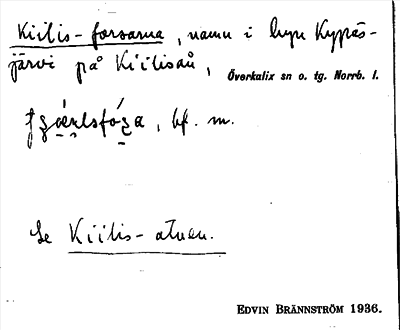 Kiilis-forsarna, namn i byn Kypäs-
järvi på Kiilisån,
Överkalix sn o. tg. Norrb. l.
bf. m.
Se Kiilis-atnen.
EDVIN BRÄNNSTRÖM 1936.